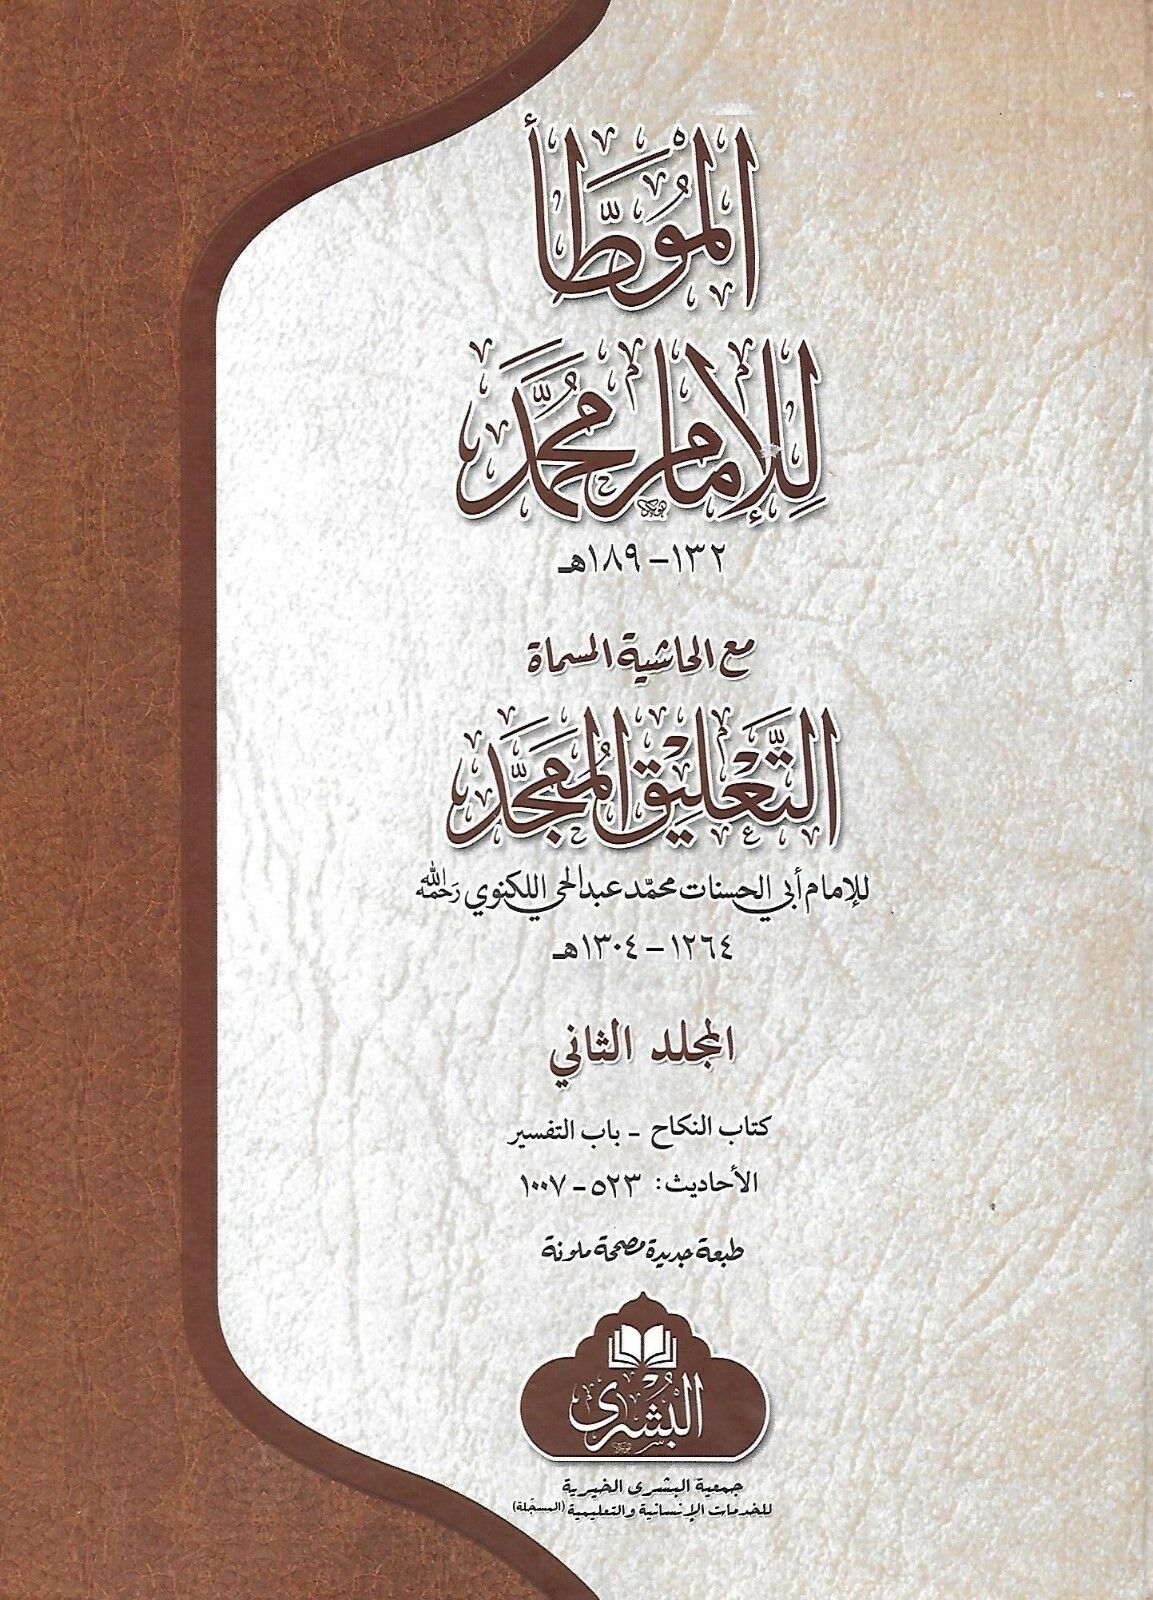 الموطَّأ
لِلإمام محمَّد
١٣٢ - ١٨٩هـ
مع الحاشية المسماة
التَّعليق المُمَجَّد
للإمام أبي الحسنات محمّد عبد الحي اللكنوي رَحِمَهُ الله
١٢٦٤ - ١٣٠٤هـ
المجلد الثاني
كتاب النكاح - باب التفسير
الأحاديث: ٥٢٣ - ١٠٠٧
طبعة جديدة مصححة ملونة
البُشرى
جمعية البشرى الخيرية
للخدمات الإنسانية والتعليمية (المسجّلة)